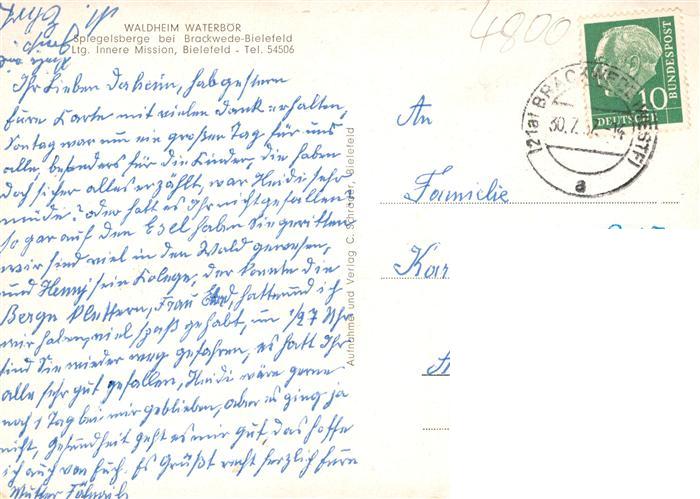 WALDHEIM WATERBÖR
Spiegelsberge bei Brackwede-Bielefeld
Ltg. Innere Mission, Bielefeld - Tel. 54506
4800
Ihr Lieben daheim, hab gestern
Eure Karte mit vielen dank erhalten,
Sontag war nun ein großer Tag für uns
alle, besonders für die Kinder, die haben
doch sicher alles erzählt, war Heidi sehr
müde? oder hatt es Ihr nicht gefallen
so gar auf den Esel haben Sie geritten
wir sind viel in den Wald gewesen,
und Henny sein Kolege, der konnte die
Berge klettern, Frau hatte und ich
wir haben viel spaß gehabt, um 1/2 7 Uhr
sind Sie wieder weg gefahren, es hatt Ihr
alle sehr gut gefallen, Heidi wäre gerne
noch 1 Tag bei mir geblieben, aber es ging ja
nicht, Gesundheit geht es mir gut, das hoffe
ich auch von Euch. Es Grüßt recht herzlich Eure
Mutter
Aufnahme und Verlag C. Schröder, Bielefeld
DEUTSCHE BUNDESPOST
10
(21a) BRACKWEDE (WESTF)
30.7.
a
An
Familie
Kar